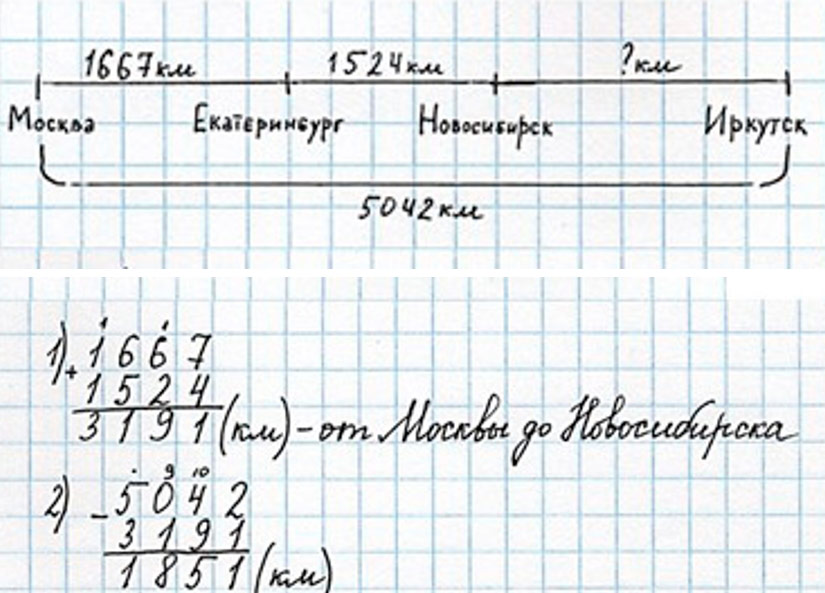 1667км 1524км ?км
Москва Екатеринбург Новосибирск Иркутск
5042км
1 1
1) + 1667
1524
3191 (км) - от Москвы до Новосибирска
. 9 10
2) - 5042
3191
1851 (км)